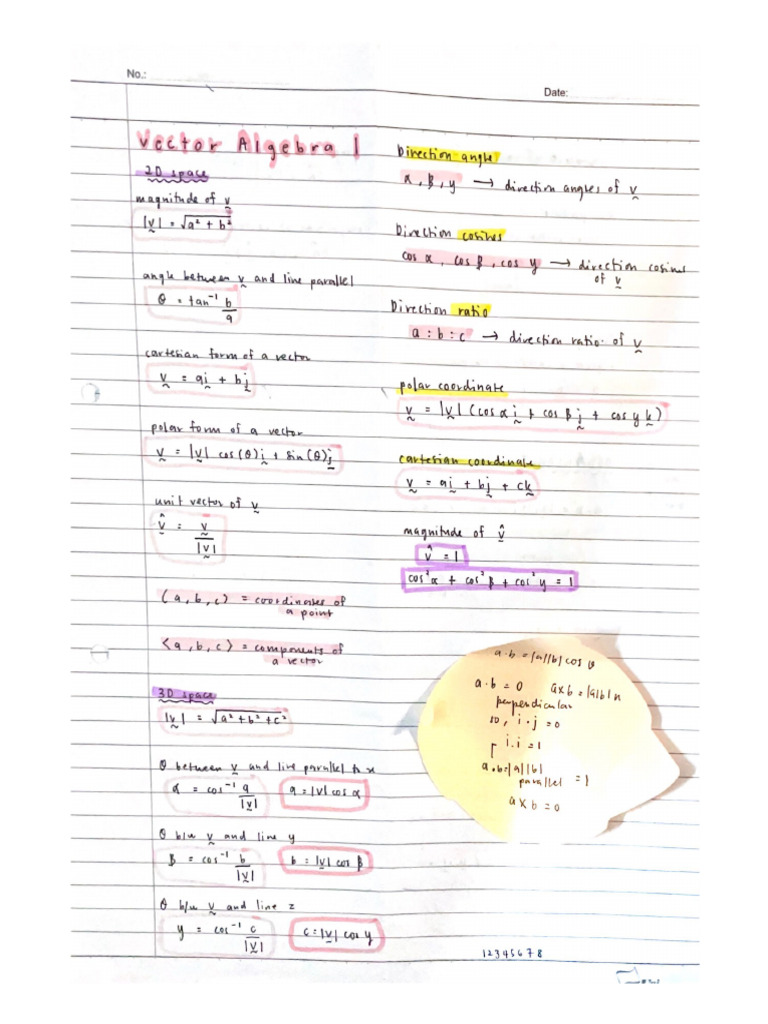 No.:
Date:
Vector Algebra 1
2D space
magnitude of v
|v| = √a² + b²
angle between v and line parallel
θ = tan⁻¹ b/a
cartesian form of a vector
v = ai + bj
polar form of a vector
v = |v| cos(θ)i + sin(θ)j
unit vector of v
v̂ = v/|v|
(a, b, c) = coordinates of
a point
<a, b, c> = components of
a vector
3D space
|v| = √a² + b² + c²
θ between v and line parallel to x
α = cos⁻¹ a/|v|
a = |v| cos α
θ b/w v and line y
β = cos⁻¹ b/|v|
b = |v| cos β
θ b/w v and line z
γ = cos⁻¹ c/|v|
c = |v| cos γ
Direction angle
α, β, γ → direction angles of v
Direction cosines
cos α, cos β, cos γ → direction cosines
of v
Direction ratio
a : b : c → direction ratio of v
polar coordinate
v = |v| (cos α i + cos β j + cos γ k)
cartesian coordinate
v = ai + bj + ck
magnitude of v̂
v̂ = 1
cos²α + cos²β + cos²γ = 1
a·b = |a||b| cos θ
a·b = 0
a×b = |a|b|n
perpendicular
so, i·j = 0
i·i = 1
a·b = |a||b|
parallel = 1
a×b = 0
12345678